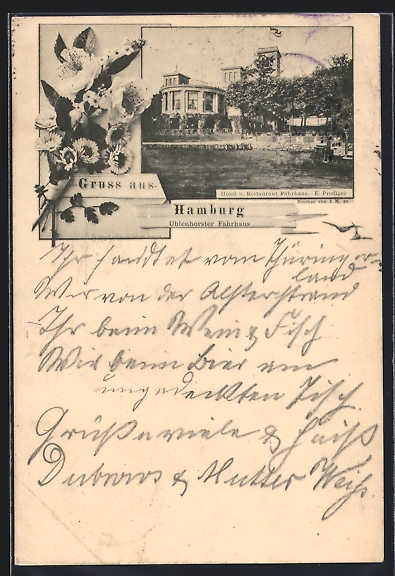 Gruss aus
Hamburg
Uhlenhorster Fährhaus
Hotel u. Restaurant Fährhaus. E. Prediger
Zimmer von 2 M. an
Ihr sandtet vom Thüringer-
land
Wir von der Alsterstrand
Ihr beim Wein & Fisch
Wir beim Bier am
ungedeckten Tisch
Grüße viele & heiß
& Mutter Weiß.